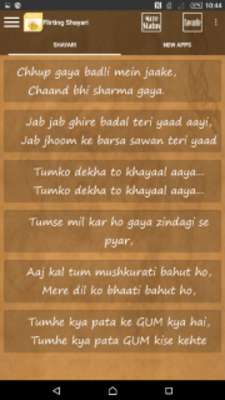 10:44
Flirting Shayari
More Status
Favorite
SHAYARI
NEW APPS
Chhup gaya badli mein jaake,
Chaand bhi sharma gaya.
Jab jab ghire badal teri yaad aayi,
Jab jhoom ke barsa sawan teri yaad
Tumko dekha to khayaal aaya...
Tumko dekha to khayaal aaya...
Tumse mil kar ho gaya zindagi se
pyar,
Aaj kal tum mushkurati bahut ho,
Mere dil ko bhaati bahut ho,
Tumhe kya pata ke GUM kya hai,
Tumhe kya pata GUM kise kehte